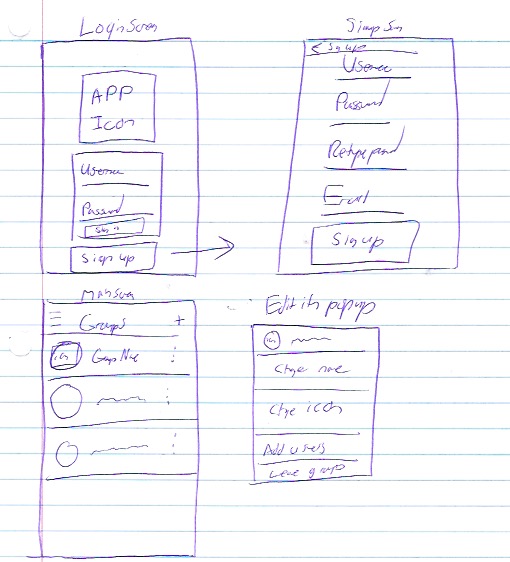 Login Screen
APP
Icon
Username
Password
Sign in
Sign up
Signup Scrn
< Sign up
Username
Password
Retype
Email
Sign up
Main Screen
Groups +
icn Group Name
Edit popup
icn
Chge name
Chge icon
Add users
Leave group